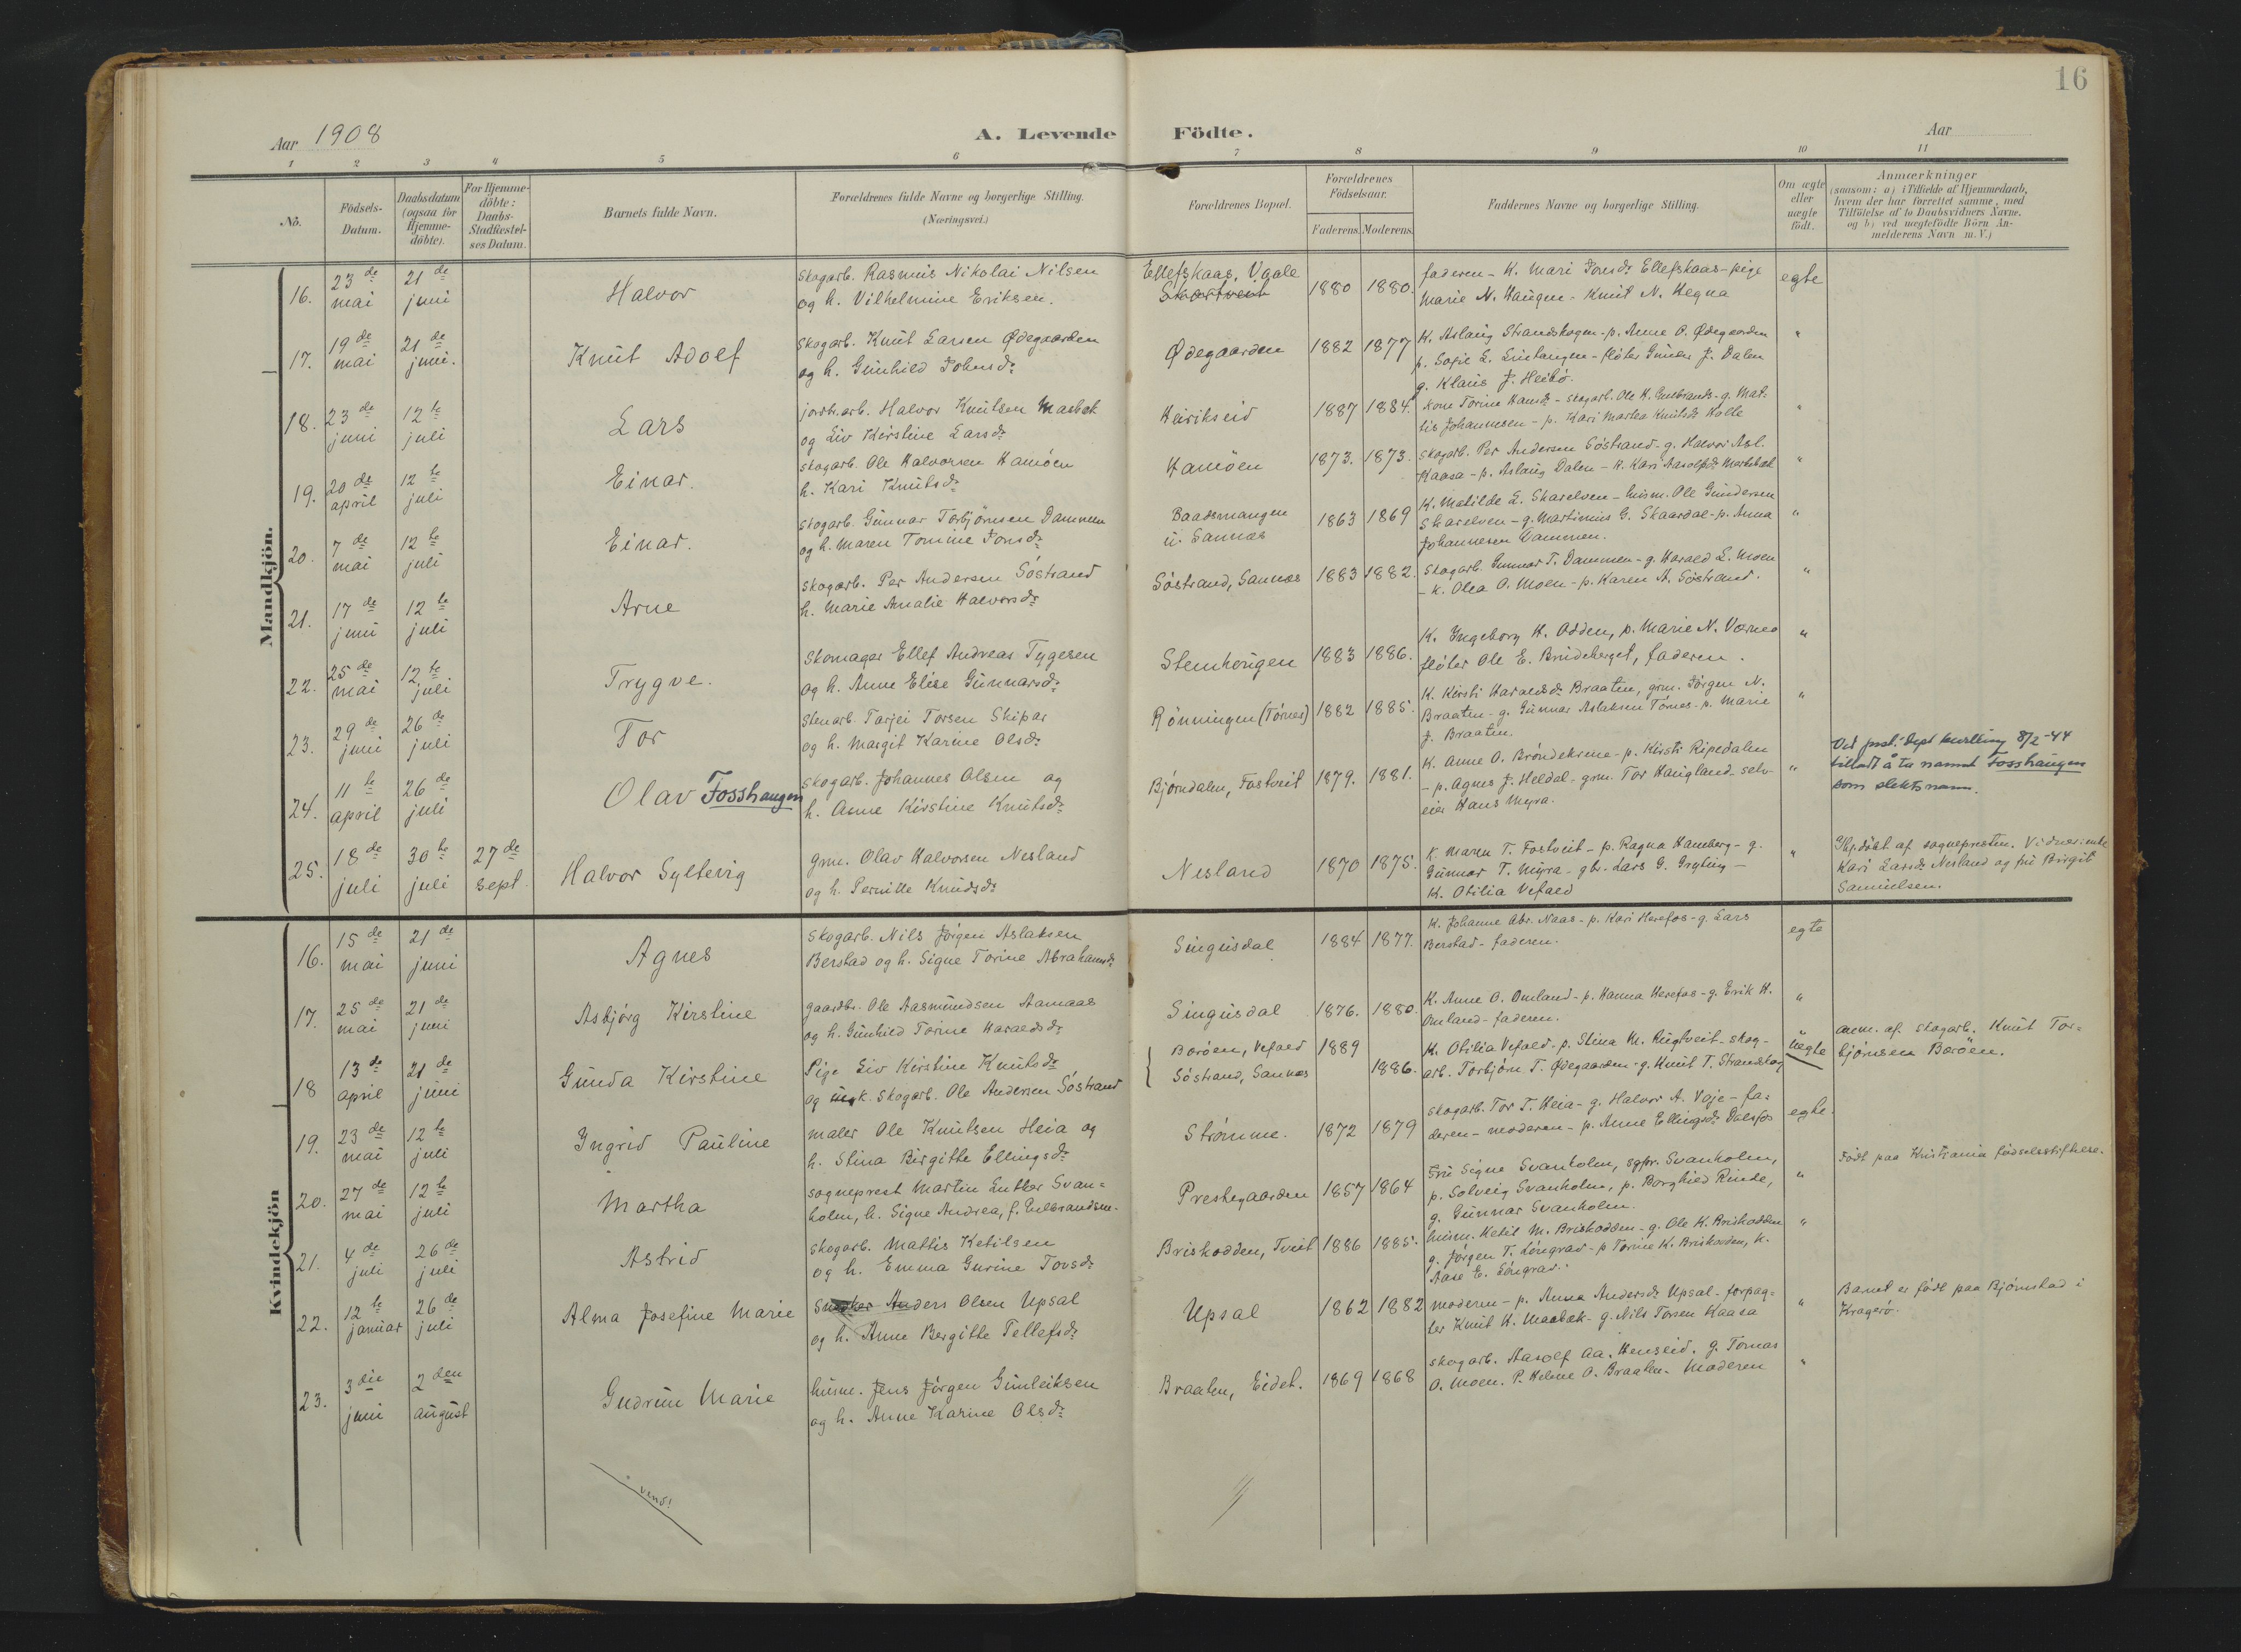 16
Aar 1908
A. Levende Födte.
Aar
1 2 3 4 5 6 7 8 9 10 11
No. Födsels-Datum. Daabsdatum (ogsaa for Hjemme-döbte). For Hjemme-döbte: Daabs-Stadfæstel-ses Datum. Barnets fulde Navn. Forældrenes fulde Navne og borgerlige Stilling. (Næringsvei.) Forældrenes Bopæl. Forældrenes Födselsaar. Faderens. Moderens. Faddernes Navne og borgerlige Stilling. Om ægte eller uægte födt. Anmærkninger
(saasom: a) i Tilfælde af Hjemmedaab,
hvem der har forrettet samme, med
Tilföielse af to Daabsvidners Navne.
og b) ved uægtefödte Börn An-
melderens Navn m. V.)
Mandkjön.
16. 23de mai 21de juni Halvor
skogarb. Rasmus Nikolai Nilsen
og h. Vilhelmine Eriksen.
Ellefskaas, Vaale
Skartveit
1880 1880.
faderen - K. Mari Jonsd. Ellefskaas - pige
Marie N. Haugen - Knut N. Hegna
egte
17. 19de mai 21de juni. Knut Adolf
skogarb. Knut Larsen Ødegaarden
og h. Gunhild Johnsd.
Ødegaarden 1882 1877
K. Aslaug Strandskogen - p. Anne O. Ødegaarden
p. Sofie L. Lintangen - fløter Gunder J. Dalen
g. Klaus J. Heibö.
"
18. 23de juni 12te juli Lars
jordb.arb. Halvor Knutsen Marbæk
og Liv Kirstine Larsd.
Henrikseid 1887 1884.
Kone Torine Hansd. - skogarb. Ole H. Gulbrands - g. Mat-
tis Johannesen - p. Kari Martea Knutsd. Kolle
"
19. 20de april 12te juli Einar.
skogarb. Ole Halvorsen Hamöen
h. Kari Knutsd.
Hamöen 1873. 1873.
skogarb. Per Andersen Söstrand - g. Halvor Asl.
Kaasa - p. Aslaug Dalen - K. Kari Aasolfsd. Mærkebæk
"
20. 7de mai 12te juli Einar.
skogarb. Gunnar Torbjörnsen Dammen
og h. Maren Tomine Jonsd.
Baadsmangen
u. Sannes
1863 1869
K. Matilde L. Skarelven - husm. Ole Gundersen
Skarelven - g. Martinius G. Skaardal - p. Anna
Johannesen Dammen.
"
21. 17de juni 12te juli Arne
skogarb. Per Andersen Söstrand
h. Marie Amalie Halvorsd.
Söstrand, Sannes 1883 1882.
skogarb. Gunnar T. Dammen - g. Harald L. Moen
- K. Olea O. Moen - p. Karen A. Söstrand.
"
22. 25de mai 12te juli Trygve.
Skomager Ellef Andreas Tygesen
og h. Anne Elise Gunnarsd.
Stemhougen 1883 1886.
K. Ingeborg H. Odden, p. Marie N. Værnes
flöter Ole E. Brudeberget, faderen.
"
23. 29de juni 26de juli Tor
Stenarb. Tarjei Torsen Skipar
og h. Margit Karine Olsd.
Rönningen (Törnes) 1882 1885.
K. Kirsti Haraldsd. Braaten, grm. Jörgen N.
Braaten - g. Gunnar Aslaksen Törnes - p. Marie
J. Braaten.
"
24. 11te april 26de juli Olav Fosshaugen
skogarb. Johannes Olsen og
h. Anne Kirstine Knutsd.
Bjørndalen, Fostveit 1879. 1881.
K. Anne O. Bröndekrine - p. Kirsti Ripedalen
- p. Agnes J. Heldal - grm. Tor Haugland - selv-
eier Hans Myra.
"
Ved just. dept bevilling 8/2-44
tillatt å ta navnet Fosshaugen
som slektsnavn.
25. 18de juli 30te juli 27de sept. Halvor Syltevig
grm. Olav Halvorsen Nesland
og h. Pernille Knudsd.
Nesland 1870 1875.
K. Maren T. Fostveit - p. Ragna Hamberg - g.
Gunnar T. Myra - gb. Lars G. Grgting -
K. Otilia Vefald
"
Hj.döbt af sognepresten. Vidner: enke
Kari Larsd. Nesland og fru Birgit
Samuelsen.
Kvindekjön
16. 15de mai 21de juni Agnes
skogarb. Nils Jörgen Aslaksen
Berstad og h. Signe Torine Abrahamsd.
Singusdal 1884 1877.
K. Johanne Abr. Naas - p. Kari Herefos - g. Lars
Berstad - faderen.
egte
17. 25de mai 21de juni Asbjörg Kirstine
gaardbr. Ole Aasmundsen Aamaas
og h. Gunhild Torine Haraldsd.
Singusdal 1876. 1880.
K. Anne O. Omland - p. Hanna Herefos - g. Erik H.
Omland - faderen.
"
18 13de april 21de juni Gunda Kirstine
Pige Liv Kirstine Knutsd.
og ungk. skogarb. Ole Andersen Söstrand
Boröen, Vefald 1889
Söstrand, Sannes 1886.
K. Otilia Vefald - p. Stina M. Rugtveit - skog-
arb. Torbjörn T. Ødegaarden - g. Knut T. Strandskog
uegte
anm. af skogarb. Knut Tor-
björnsen Boröen.
19. 23de mai 12te juli Ingrid Pauline
maler Ole Knutsen Heia og
h. Stina Birgitte Ellingsd.
Strömme. 1872 1879
skogarb. Tor T. Heia - g. Halvor A. Vaje - fa-
deren - moderen - p. Anne Ellingsd. Dalsfos
egte.
20. 27de mai 12te juli Martha
sogneprest Martin Luther Svan-
holm, h. Signe Andrea, f. Gulbrandsen.
Prestegaarden 1857 1864
Fru Signe Svanholm, sgpr. Svanholm,
p. Solveig Svanholm, p. Borghild Rinde,
g. Gunnar Svanholm.
"
Födt paa Kristiania födselsstiftelse.
21. 4de juli 26de juli Astrid
skogarb. Mattis Ketilsen
og h. Emma Gurine Torsd.
Briskodden, Tveit 1886 1885.
husm. Ketil M. Briskodden - g. Ole K. Briskodden
g. Jörgen T. Löngrav - p Torine K. Briskodden, K.
Aase E. Löngrav.
"
22. 12te januar 26de juli Alma Josefine Marie
Snedker Anders Olsen Upsal
og h. Anne Bergitte Tellefsd.
Upsal 1862 1882
moderen - p. Anna Andersd. Upsal - forpag-
ter Knut K. Maabæk - g. Nils Torsen Kaasa
"
Barnet er födt paa Bjørnstad i
Kragerö.
23. 3die juni 2den august Gudrun Marie
husm. Jens Jörgen Gunleiksen
og h. Anne Karine Olsd.
Braaten, Eidet. 1869 1868
skogarb. Aasolf Aa. Henseid. g. Tomas
O. Moen. P. Helene O. Braaten. Moderen
"
vend!